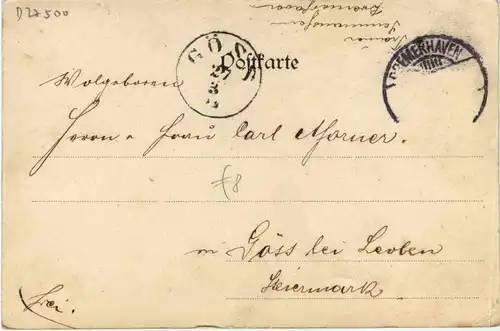 D27500
GÖSS
27
3
Postkarte
BREMERHAVEN
Wolgeboren
Herrn & Frau Carl
£8
in Göss bei Leoben
Steiermark
Frei.